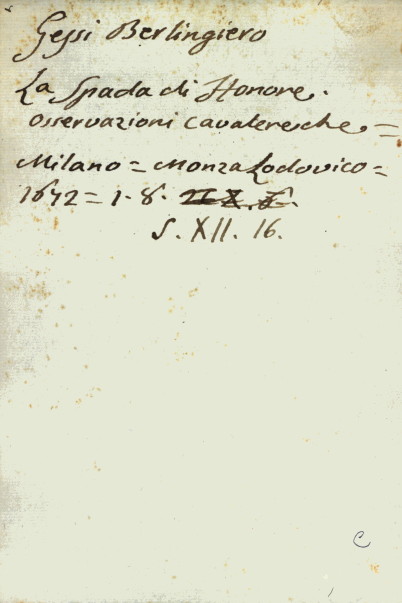 Gessi Berlingiero
La Spada di Honore.
osservazioni cavaleresche =
Milano = Monza Lodovico =
1672 = 1. 8.
S. XII. 16.
C